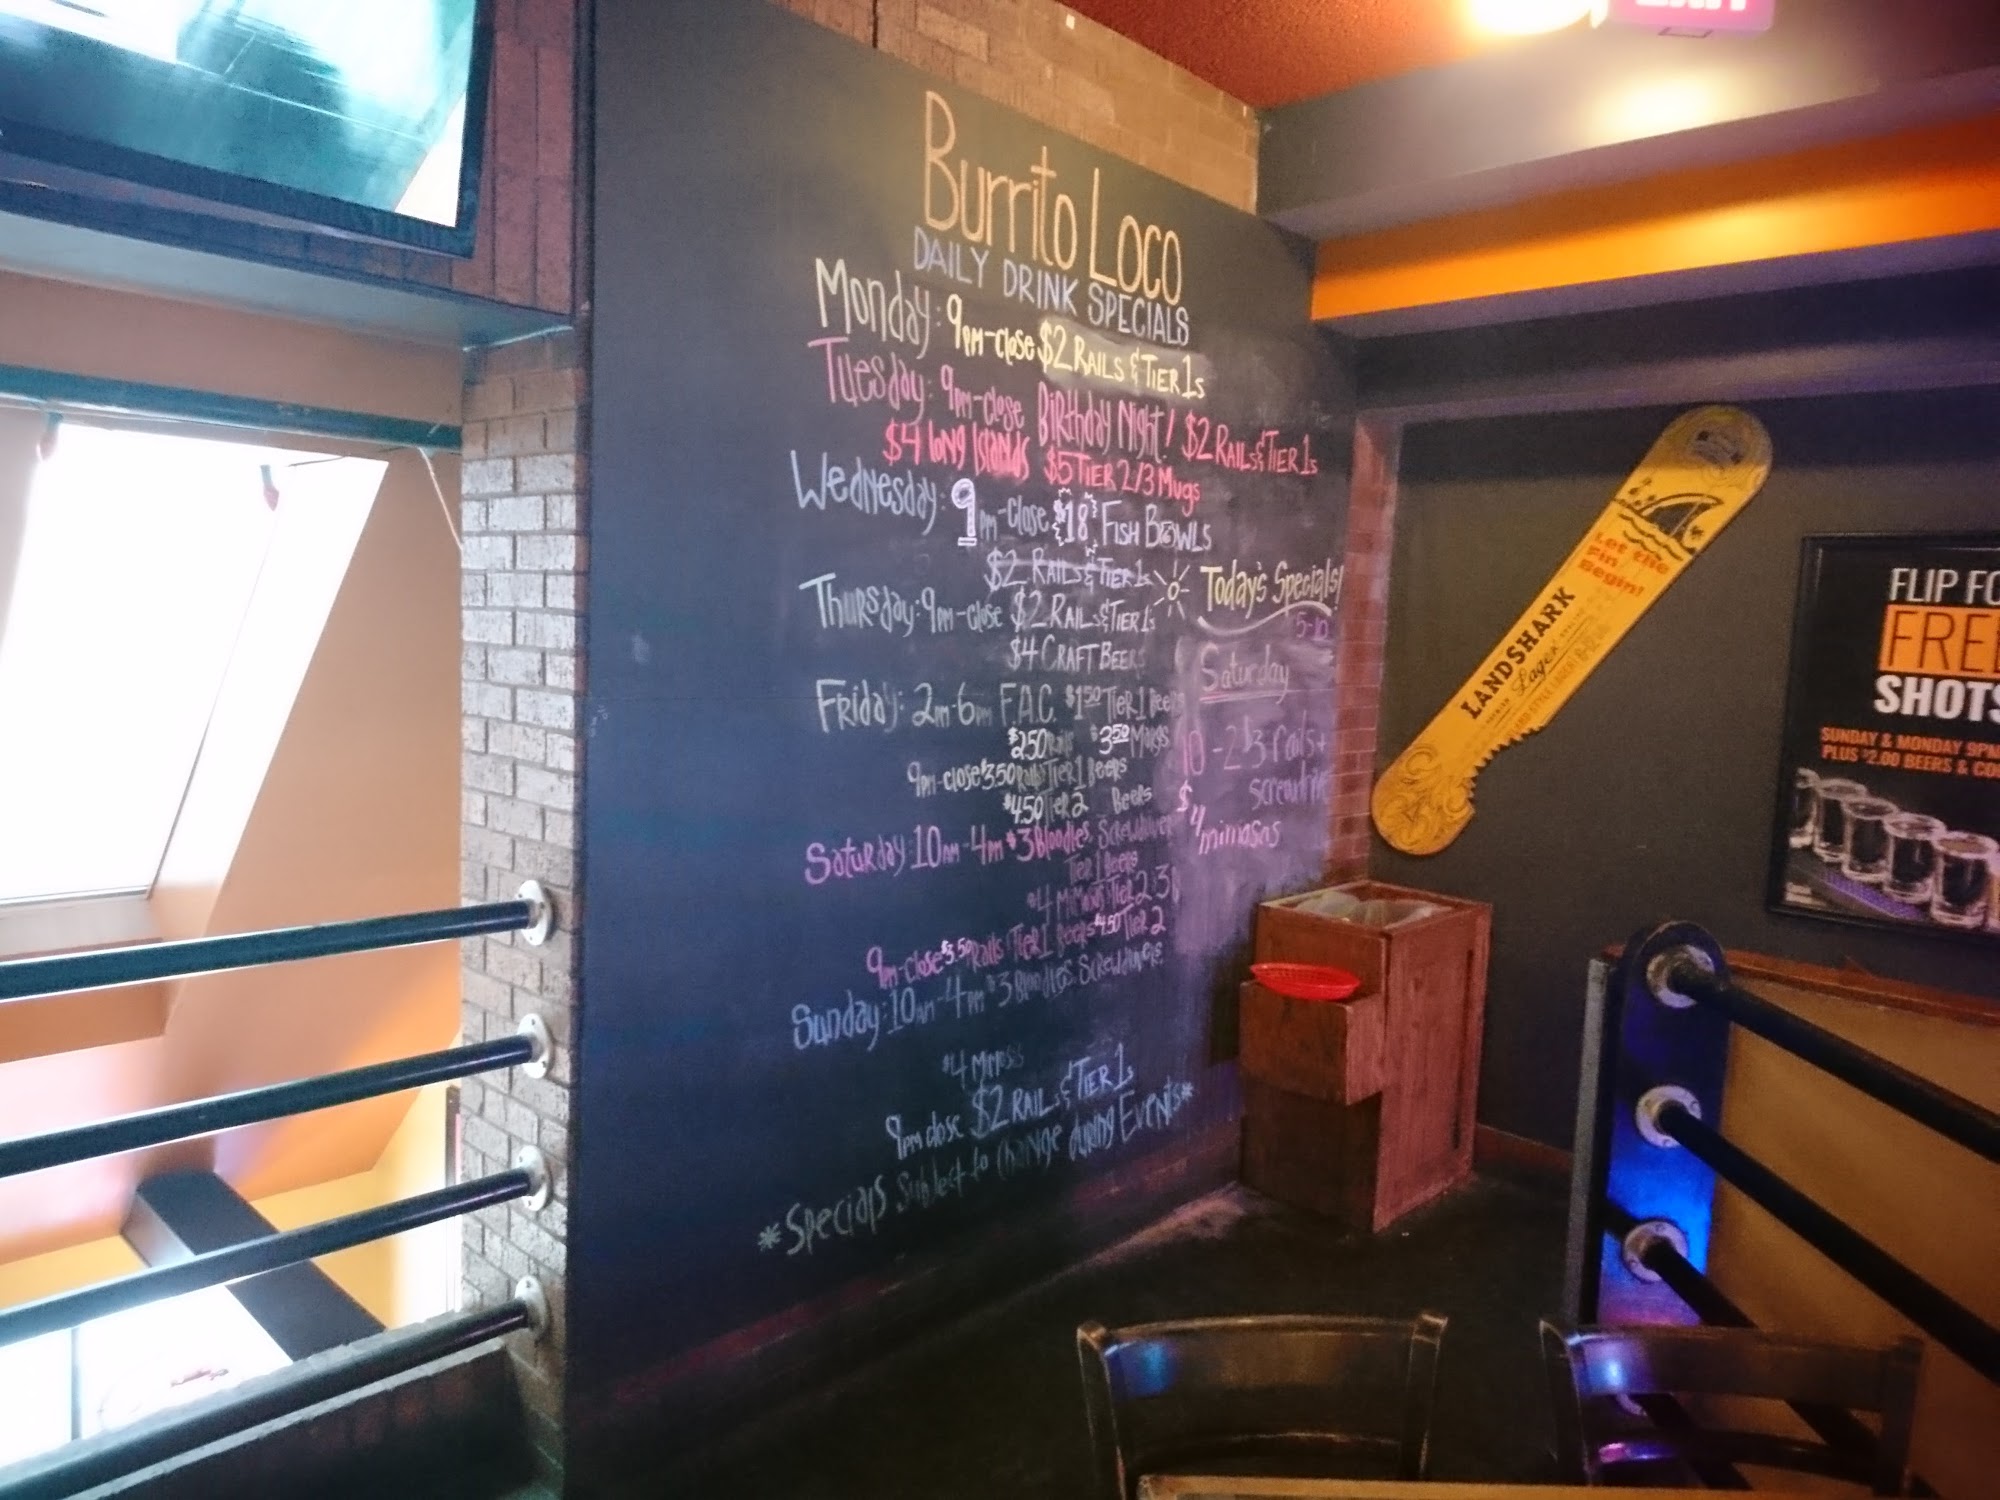 Burrito Loco
DAILY DRINK SPECIALS
Monday: 9pm-close $2 RAILS & TIER 1s
Tuesday: 9pm-close Birthday Night! $2 RAILS & TIER 1s
$4 Long Islands $5 TIER 2/3 Mugs
Wednesday: 9pm-close $18 FISH BOWLS
$2 RAILS & TIER 1s
Thursday: 9pm-close $2 RAILS & TIER 1s
$4 CRAFT BEERS
Friday: 2pm-6pm F.A.C. $1.50 TIER 1 Beers
$2.50 Rails $3.50 Mugs
9pm-close $3.50 Rails TIER 1 Beers
$4.50 TIER 2 Beers
Saturday: 10am-4pm $3 Bloodies, Screwdrivers
TIER 1 Beers
$4 Mimosas TIER 2-3
9pm-close $3.50 Rails TIER 1 Beers $4.50 TIER 2
Sunday: 10am-4pm $3 Bloodies, Screwdrivers
$4 Mimosas
9pm close $2 RAILS & TIER 1s
*Specials Subject to Change during Events*
Today's Specials!
5-10
Saturday
10-2 3 rails +
$4 mimosas
Let the
Fin
Begin!
LANDSHARK
Lager
FLIP FO
FREE
SHOTS
SUNDAY & MONDAY 9PM
PLUS $2.00 BEERS & CO